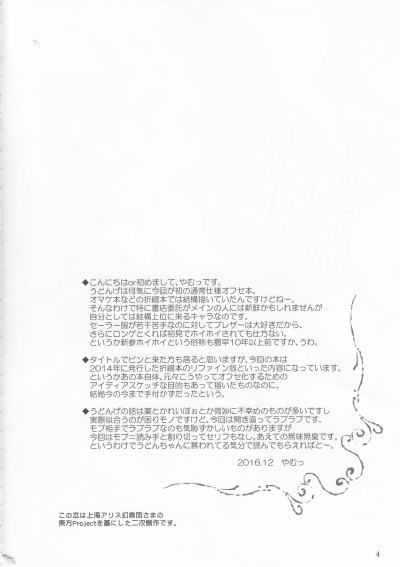 ◆こんにちはor初めまして、やむっです。
うどんげは何気に今回が初の通常仕様オフセ本。
オマケ本などの折綴本では結構描いていたんですけどねー。
そんなわけで特に書店委託がメインの人には新鮮かもしれませんが
自分としては結構上位に来るキャラなのです。
セーラー服が若干苦手なのに対してブレザーは大好きだから、
さらにロンゲとくれば初見でホイホイされても仕方ない。
というか新参ホイホイという俗称も最早10年以上前ですか、うわ。
◆タイトルでピンと来た方も居ると思いますが、今回の本は
2014年に発行した折綴本のリファイン版といった内容になっています。
というかあの本自体、元々こうやってオフセ化するための
アイディアスケッチな目的もあって描いたものなのに、
結局今の今まで手付かずだったという。
◆うどんげの話は薬とかれいぽぉとか微妙に不幸めのものが多いですし
実際似合うのが困りモノですけど、今回は開き直ってラブラブです。
モブ相手でラブラブなのも気恥ずかしいものがありますが
今回はモブ=読み手と割り切ってセリフもなし、あえての無味無臭です。
というわけでうどんちゃんに慕われてる気分で読んでもらえればとー。
2016.12 やむっ
この本は上海アリス幻樂団さまの
東方Projectを基にした二次創作です。
4